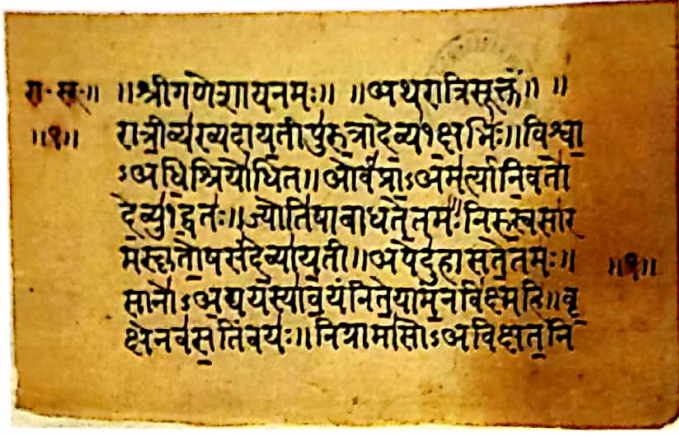 रा॰ सू॰॥ ॥श्रीगणेशायनमः॥ ॥अथरात्रिसूक्तं॥ ॥
॥१॥ रात्री॒व्य॑ख्यदाय॒तीपु॑रु॒त्रादे॒व्य१॒॑क्षभिः॑॥विश्वा॒
ऽअधि॒श्रियो॑धित॥ओर्व॑प्रा॒ऽअम॑र्त्यानि॒वतो॑
दे॒व्यु१॒॑द्वतः॑॥ज्योति॑षाबाधते॒तमः॑॥निरु॒स्वसा॑र
मस्कृतो॒षसं॑दे॒व्या॑य॒ती॥अपेदु॑हासते॒तमः॑॥ ॥१॥
सानो॑ऽअ॒द्ययस्या॑व॒यंनिते॒याम॒न्नवि॑क्ष्महि॥वृ॒
क्षेनव॑स॒तिंवयः॑॥निग्रामा॑सोऽअविक्षत॒नि